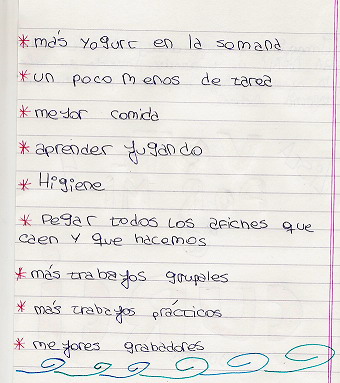 * más yogurt en la somana
* un poco menos de tarea
* meyor comida
* aprender yugando
* Higiene
* Pegar todos los afiches que
caen y que hacemos
* más trabayos grupales
* más trabayos prácticos
* meyores grabadores